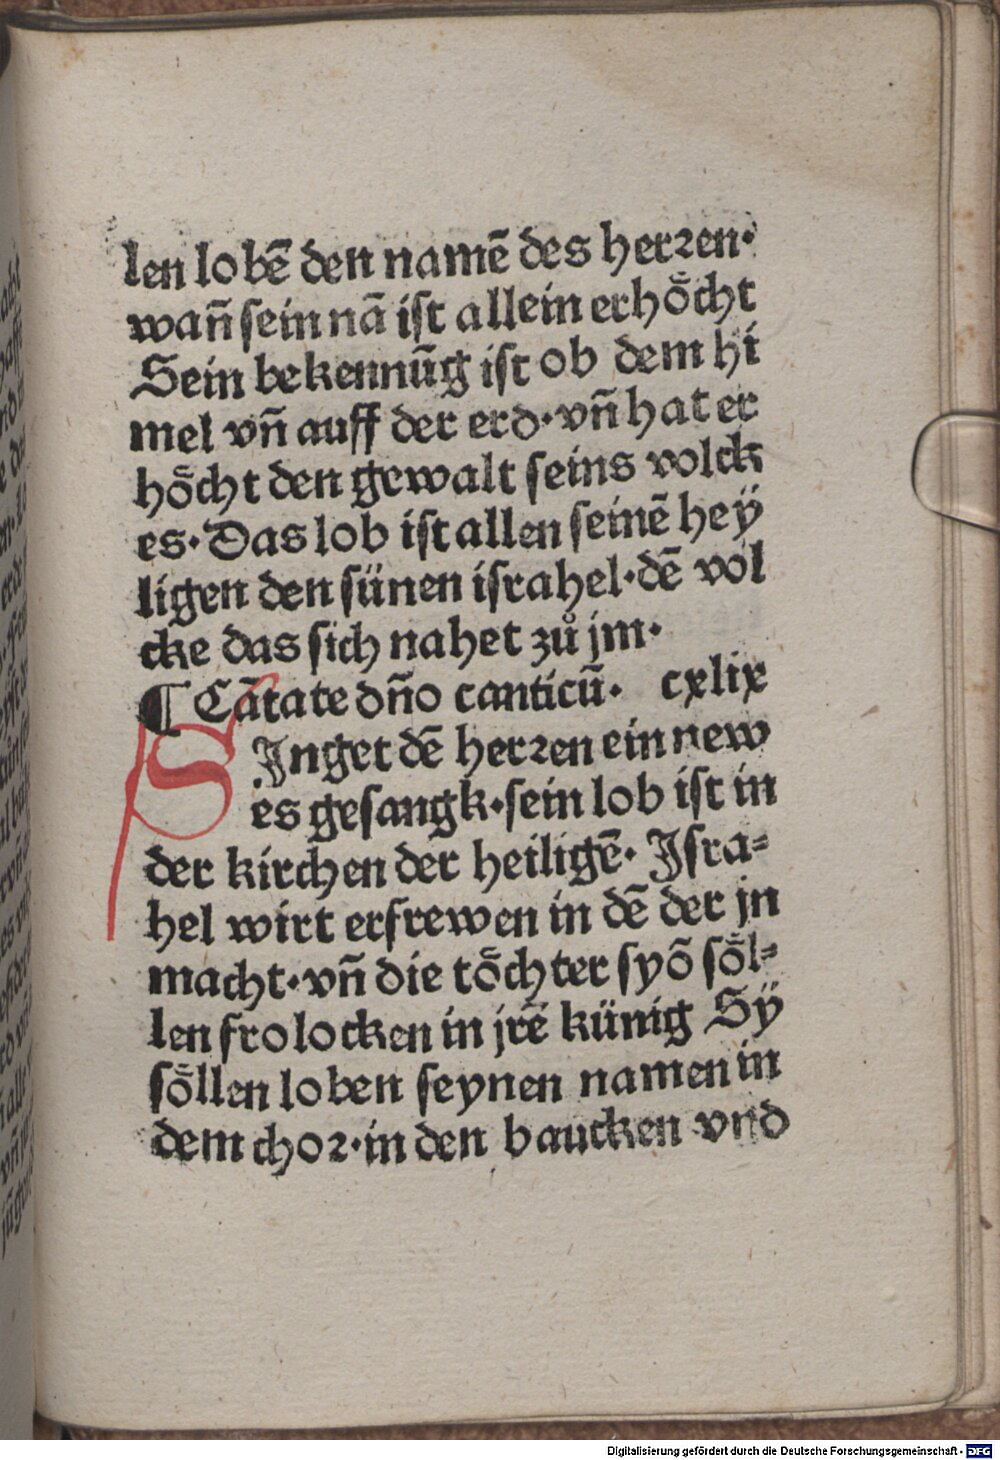 len lobē den namē des herꝛen·
wañ sein nā ist allein erhoͤcht
Sein bekennūg ist ob dem hi
mel vñ auff der erd·vñ hat er
hoͤcht den gewalt seins volck
es·Das lob ist allen seinē heÿ
ligen den sünen israhel·dē vol
cke das sich nahet zů jm·
¶ Cātate dño canticū· cxlix
SInget dē herꝛen ein new
es gesangk·sein lob ist in
der kirchen der heiligē· Jsra⸗
hel wirt erfrewen in dē der jn
macht·vñ die toͤchter syō soͤl⸗
len frolocken in jrē künig Sÿ
soͤllen loben seynen namen in
dem choꝛ·in den baucken vnd
Digitalisierung gefördert durch die Deutsche Forschungsgemeinschaft - DFG